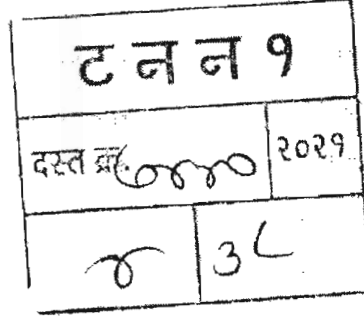 ट न न १
दस्त क्र. ७४४० २०२१
४ ३८